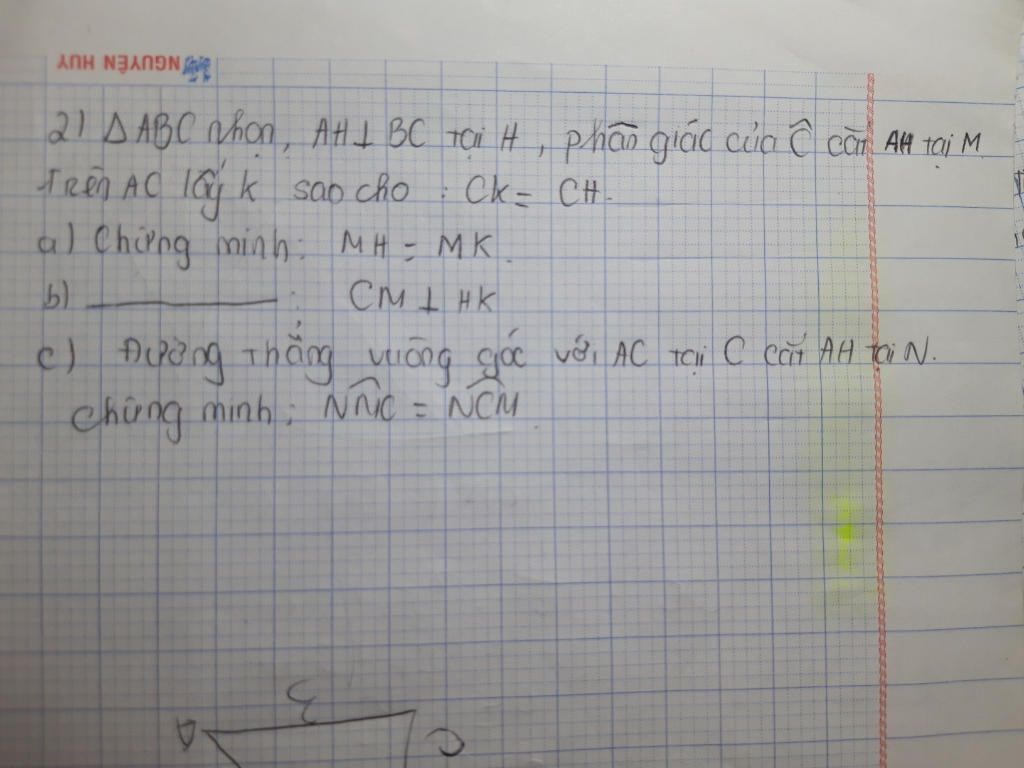 NGUYÊN HUY
2) ΔABC nhọn, AH⊥BC tại H, phân giác của Ĉ cắt AH tại M.
Trên AC lấy k sao cho : Ck = CH.
a) Chứng minh: MH = MK.
b) ________ : CM ⊥ HK
c) Đường thẳng vuông góc với AC tại C cắt AH tại N.
Chứng minh: NMC = NCM
A
C